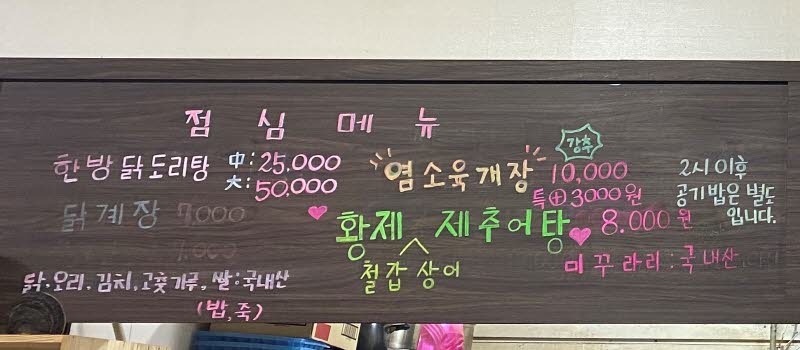 점심메뉴
한방 닭도리탕 中: 25,000
大: 50,000
닭계장 7,000
7,000
닭·오리, 김치, 고춧가루, 쌀: 국내산
(밥, 죽)
강추
염소육개장 10,000
특⊕3000원
황제 제추어탕 8.000원
철갑상어
미꾸라리: 국내산
2시 이후
공기밥은 별도
입니다.